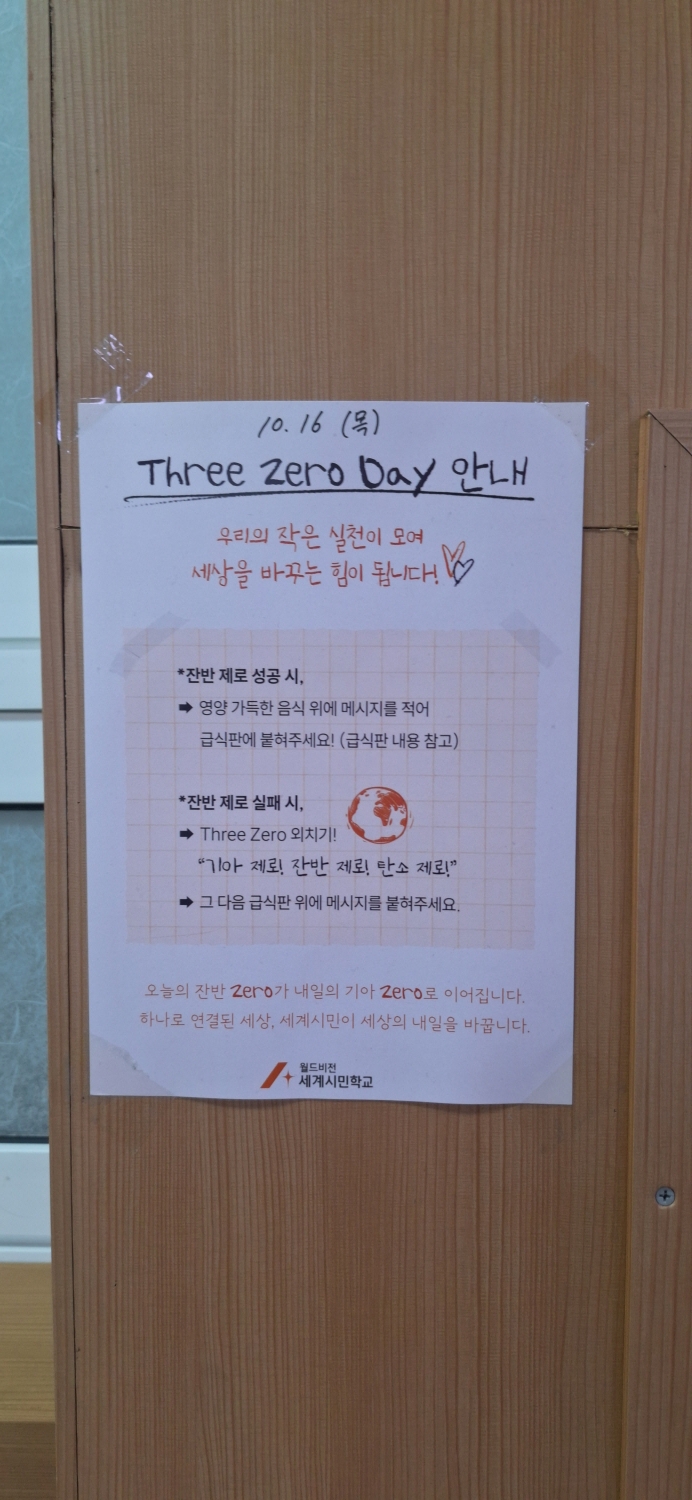 10. 16 (목)
Three Zero Day 안내
우리의 작은 실천이 모여
세상을 바꾸는 힘이 됩니다!
*잔반 제로 성공 시,
➡ 영양 가득한 음식 위에 메시지를 적어
급식판에 붙혀주세요! (급식판 내용 참고)
*잔반 제로 실패 시,
➡ Three Zero 외치기!
“기아 제로! 잔반 제로! 탄소 제로!”
➡ 그 다음 급식판 위에 메시지를 붙혀주세요.
오늘의 잔반 Zero가 내일의 기아 Zero로 이어집니다.
하나로 연결된 세상, 세계시민이 세상의 내일을 바꿉니다.
월드비전
세계시민학교